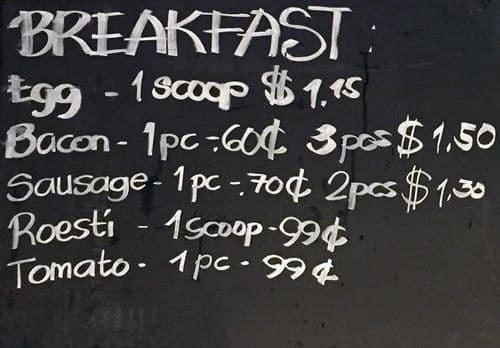 BREAKFAST:
Egg - 1 scoop $ 1.15
Bacon - 1pc - .60¢ 3 pcs $ 1.50
Sausage - 1 pc - .70¢ 2pcs $ 1.30
Roesti - 1 scoop - 99¢
Tomato - 1 pc - 99¢